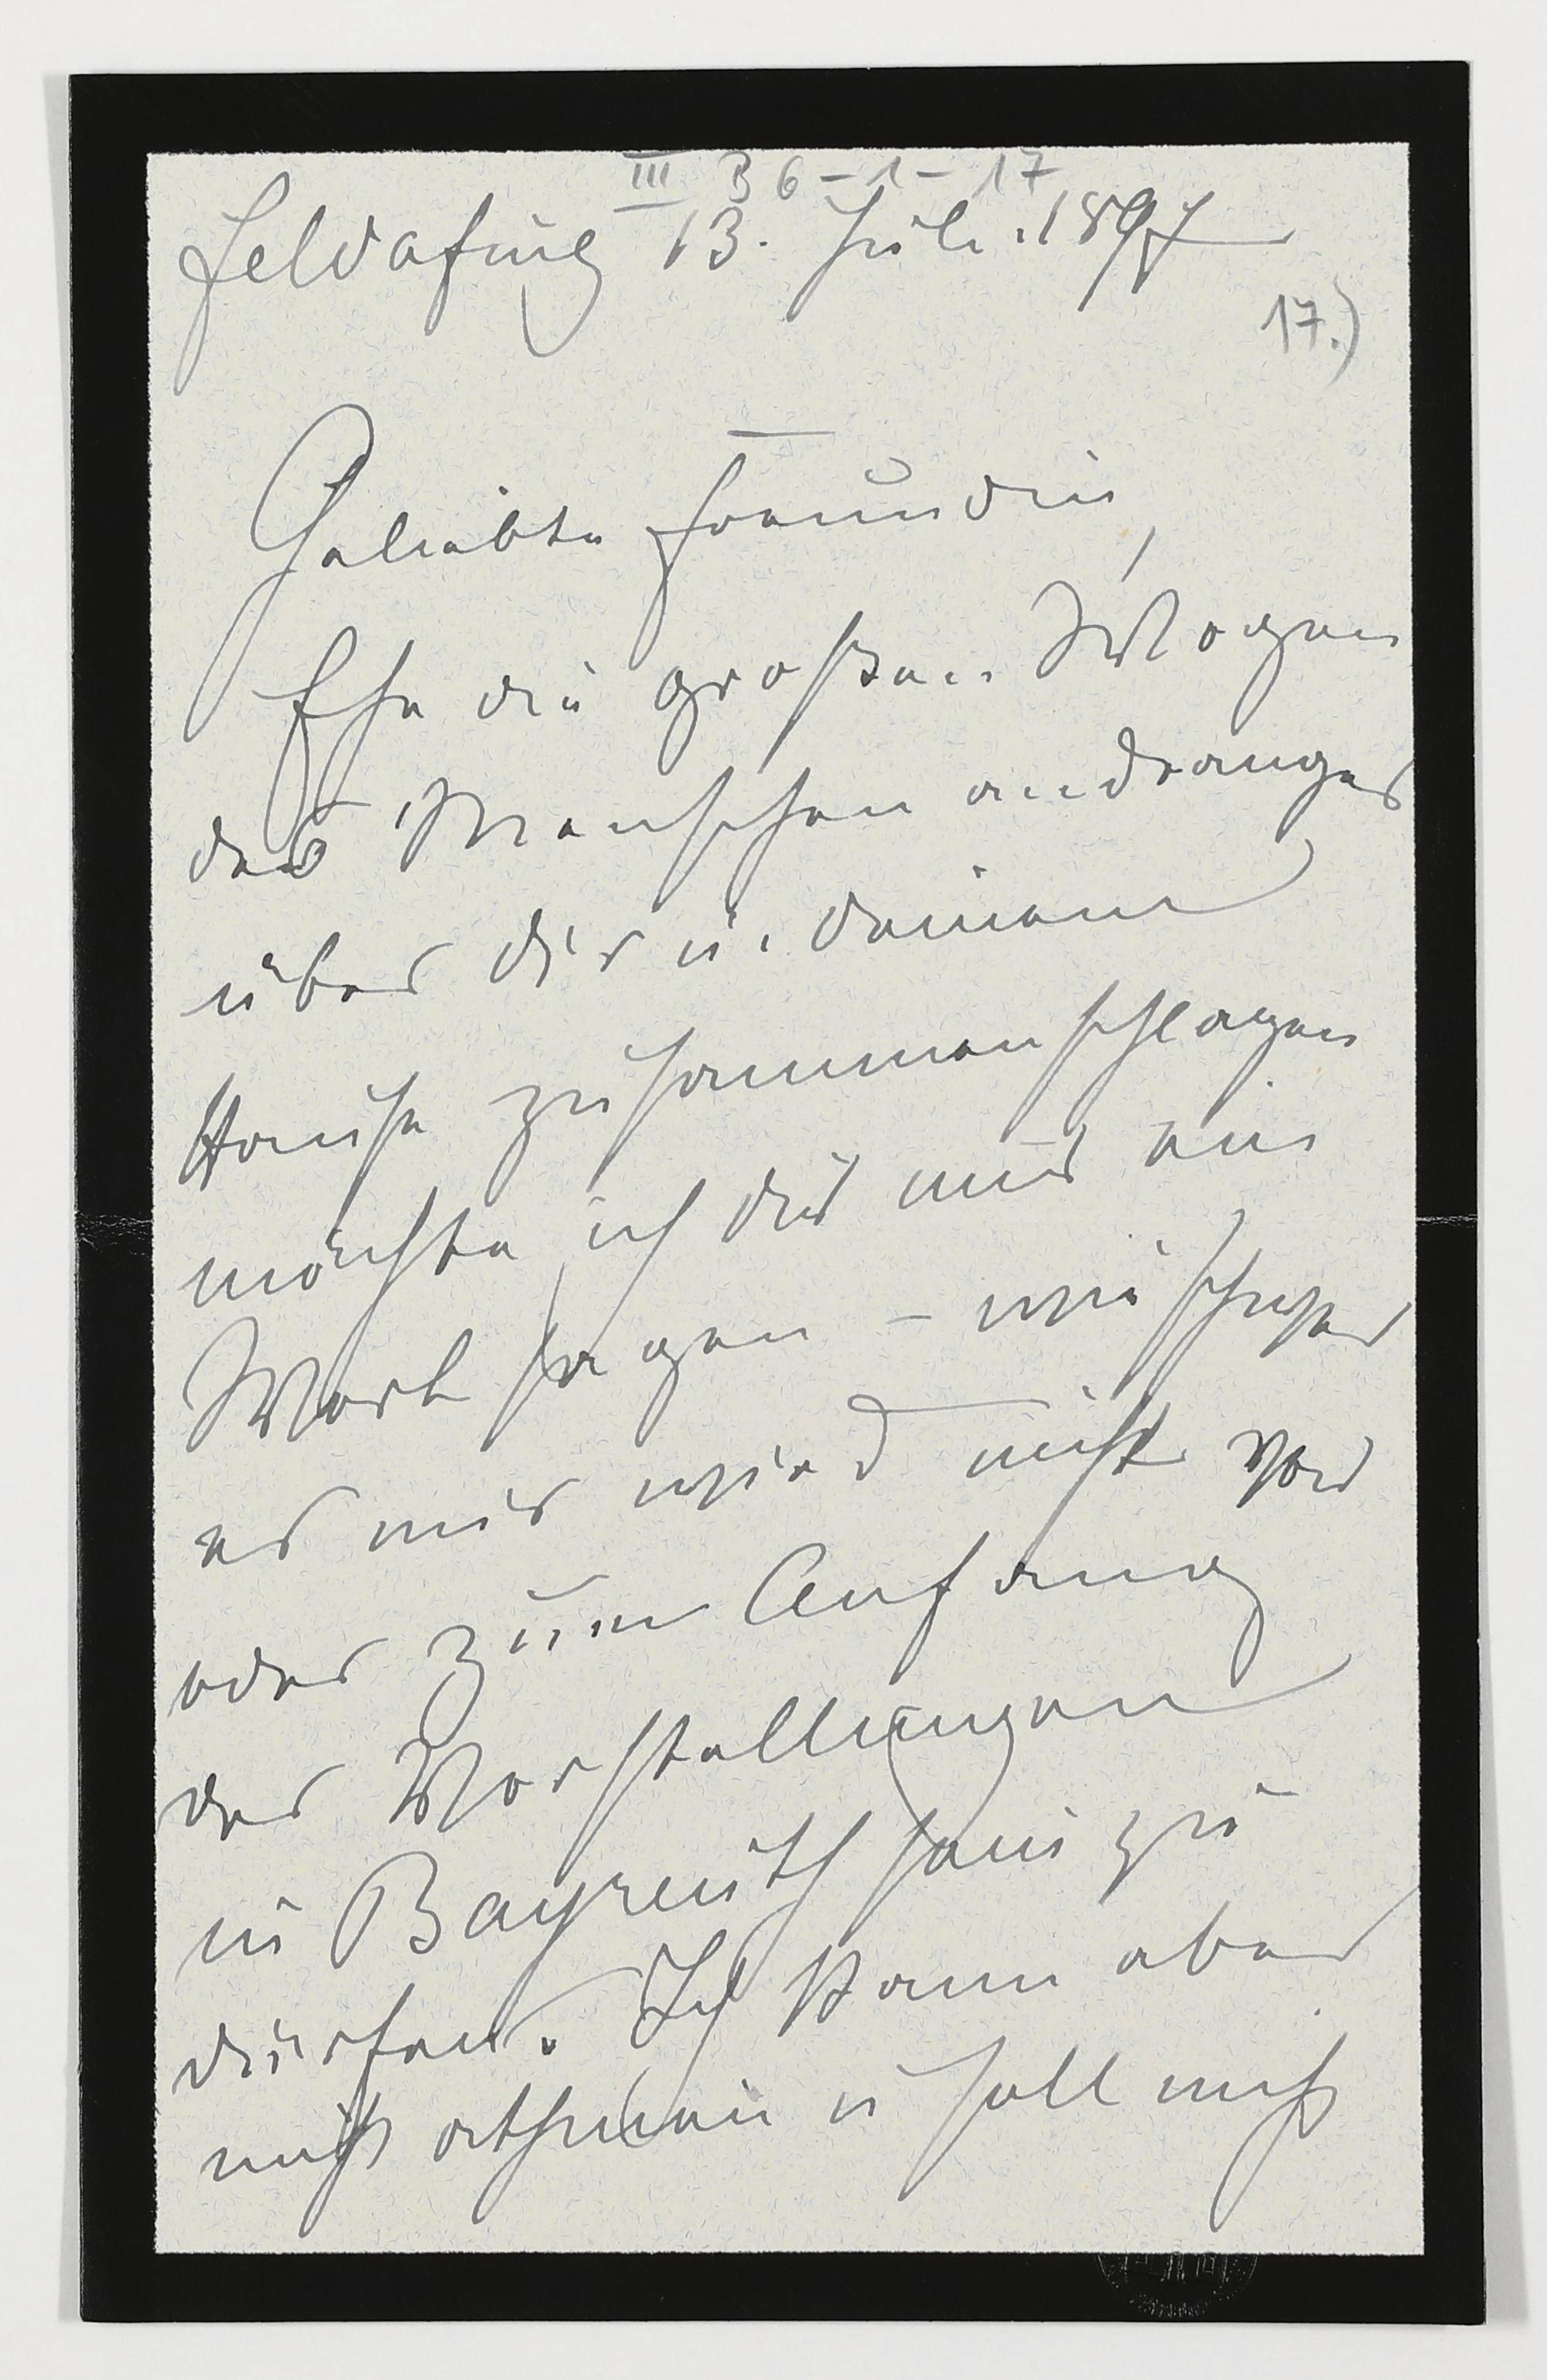 III B 6-1-17
Feldafing 13. Juli. 1897
17.)
Geliebte Freundin,
Ehe die großen Wogen
des Menschenandranges
über dir u. deinem
Hause zusammenschlagen
möchte ich dir nur ein
Wort sagen – wie schwer
es mir wird nicht vor
oder zum Anfang
der Vorstellungen
in Bayreuth sein zu
dürfen. Ich kann aber
nicht athmen u soll mich